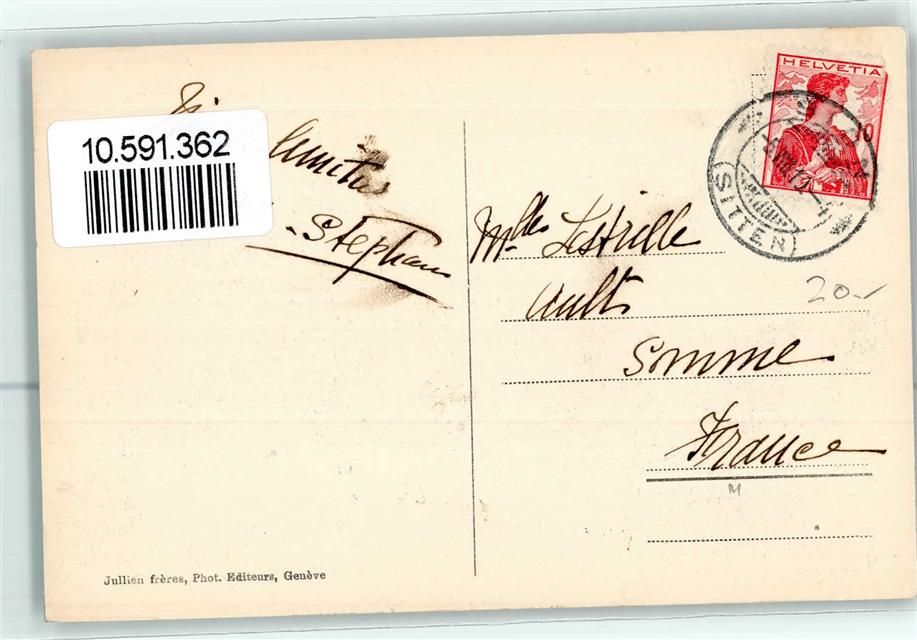 10.591.362
HELVETIA
10
(SITTEN)
amitiés
Stephan
Mlles Lestrille
Ault
Somme
France
20.-
M
Jullien frères, Phot. Editeurs, Genève